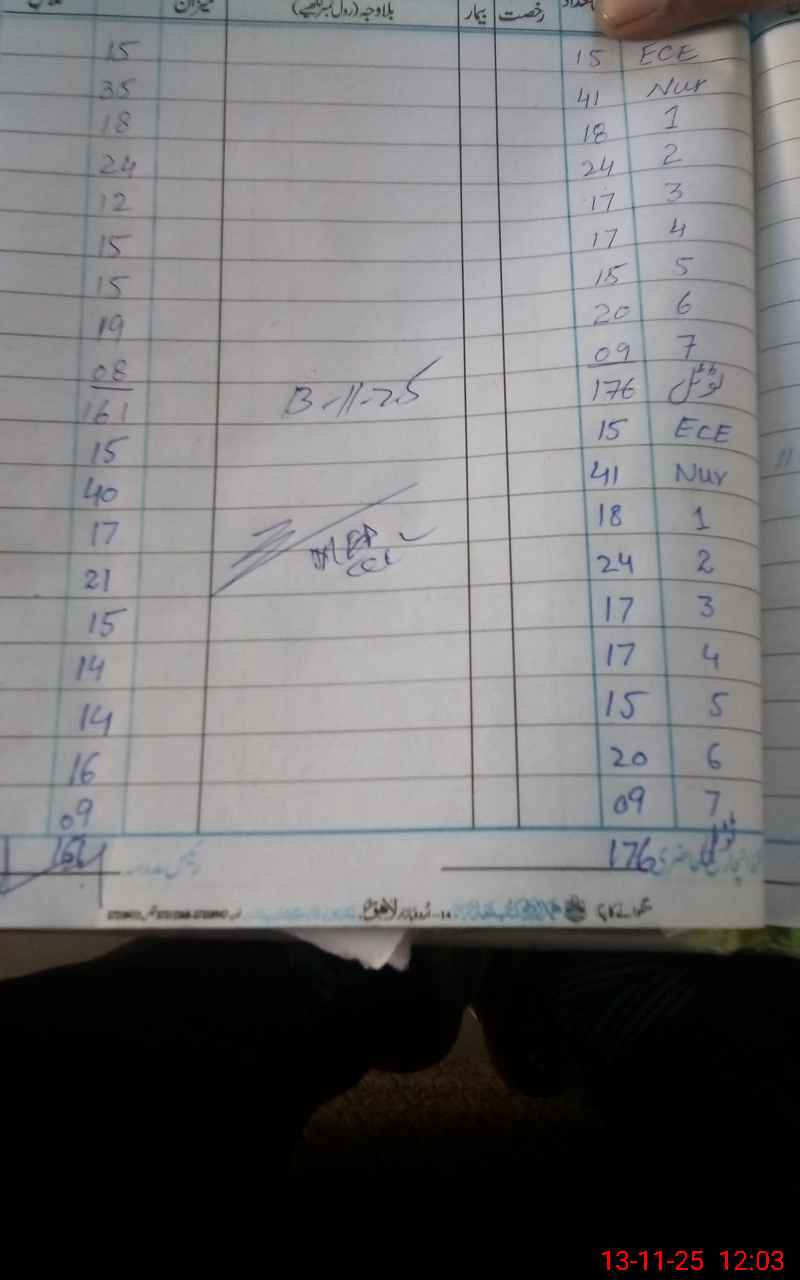 تعداد رخصت بیمار بلاوجہ (رول نمبر لکھیے) میزان
ECE 15 15
Nur 41 35
1 18 18
2 24 24
3 17 12
4 17 15
5 15 15
6 20 19
7 09 08
ٹوٹل 176 161
13-11-25
ECE 15 15
Nur 41 40
1 18 17
2 24 21
3 17 15
4 17 14
5 15 14
6 20 16
7 09 09
176 161
رئیس مدرسہ
13-11-25 12:03